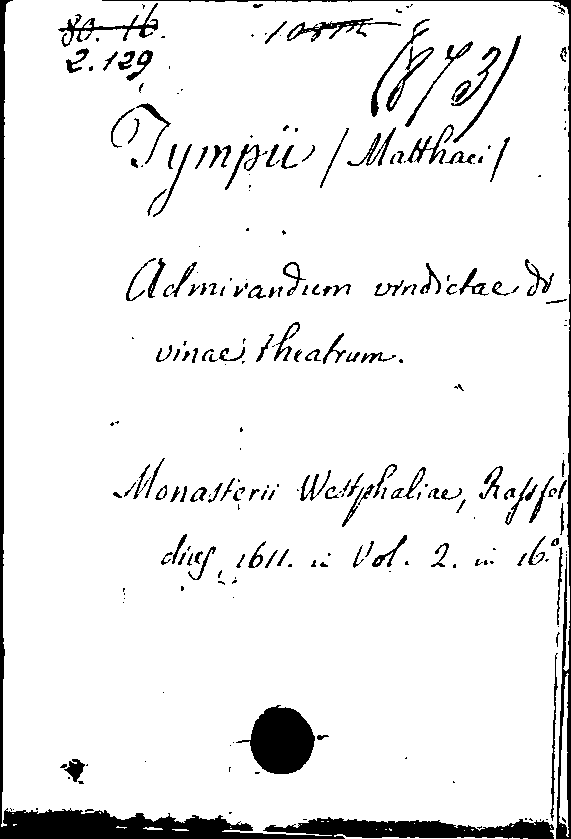 80. 16.
2.129
(873)
Tympii / Matthaei /
Admirandum vindictae di_
vinae theatrum.
Monasterii Westphaliae, Rassfel
dius, 1611. in Vol. 2. in 16.°